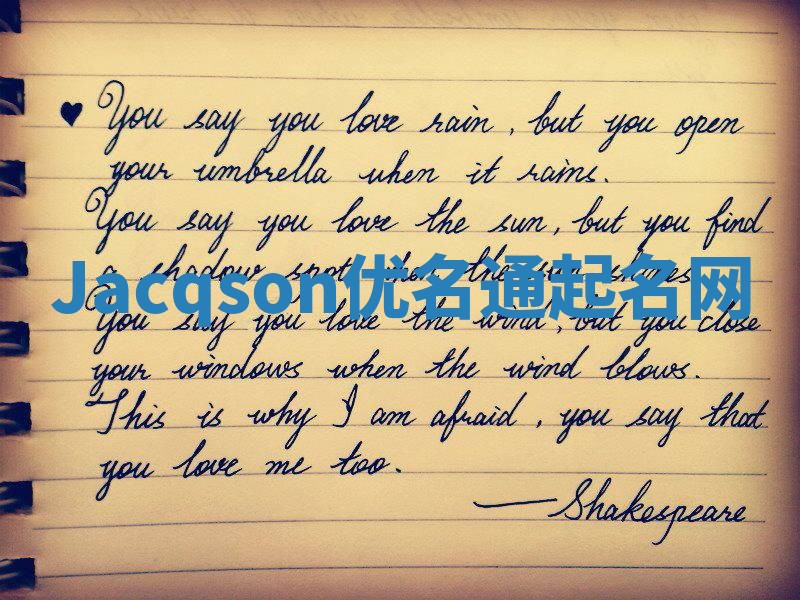 ♥ You say you love rain, but you open
your umbrella when it rains.
You say you love the sun, but you find
a shadow spot when the sun shines.
Jacqson优名通起名网
You say you love the wind, but you close
your windows when the wind blows.
This is why I am afraid, you say that
you love me too.
—Shakespeare